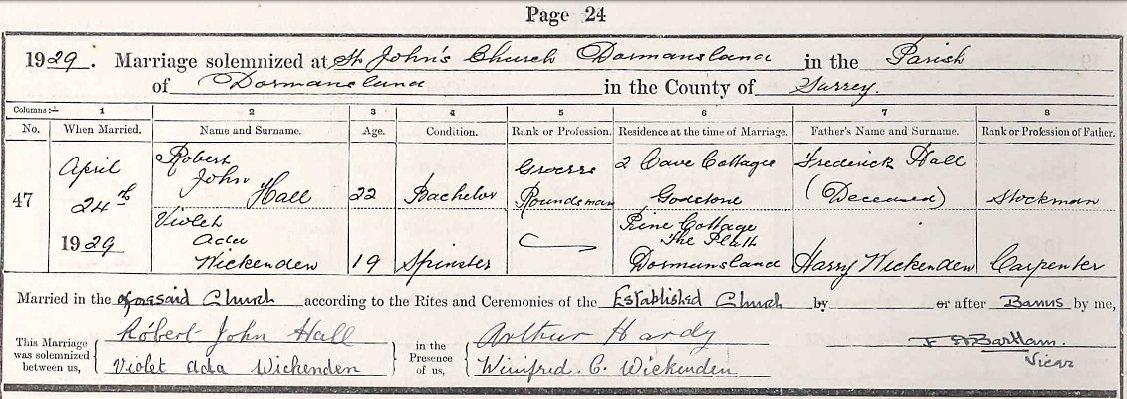 Page 24
1929. Marriage solemnized at St John's Church Dormansland in the Parish
of Dormansland in the County of Surrey.
Columns:— 1 2 3 4 5 6 7 8
No. When Married. Name and Surname. Age. Condition. Rank or Profession. Residence at the time of Marriage. Father's Name and Surname. Rank or Profession of Father.
47
April
24th
1929
Robert
John
Hall
22
Bachelor
Grocers
Roundsman
2 Cave Cottages
Godstone
Frederick Hall
(Deceased)
Stockman
Violet
Ada
Wickenden
19
Spinster
Pine Cottage
The Platt
Dormansland
Harry Wickenden
Carpenter
Married in the aforesaid Church according to the Rites and Ceremonies of the Established Church by or after Banns by me,
This Marriage was solemnized between us,
Robert John Hall
Violet Ada Wickenden
in the Presence of us,
Arthur Hardy
Winifred. C. Wickenden
Bartlam.
Vicar